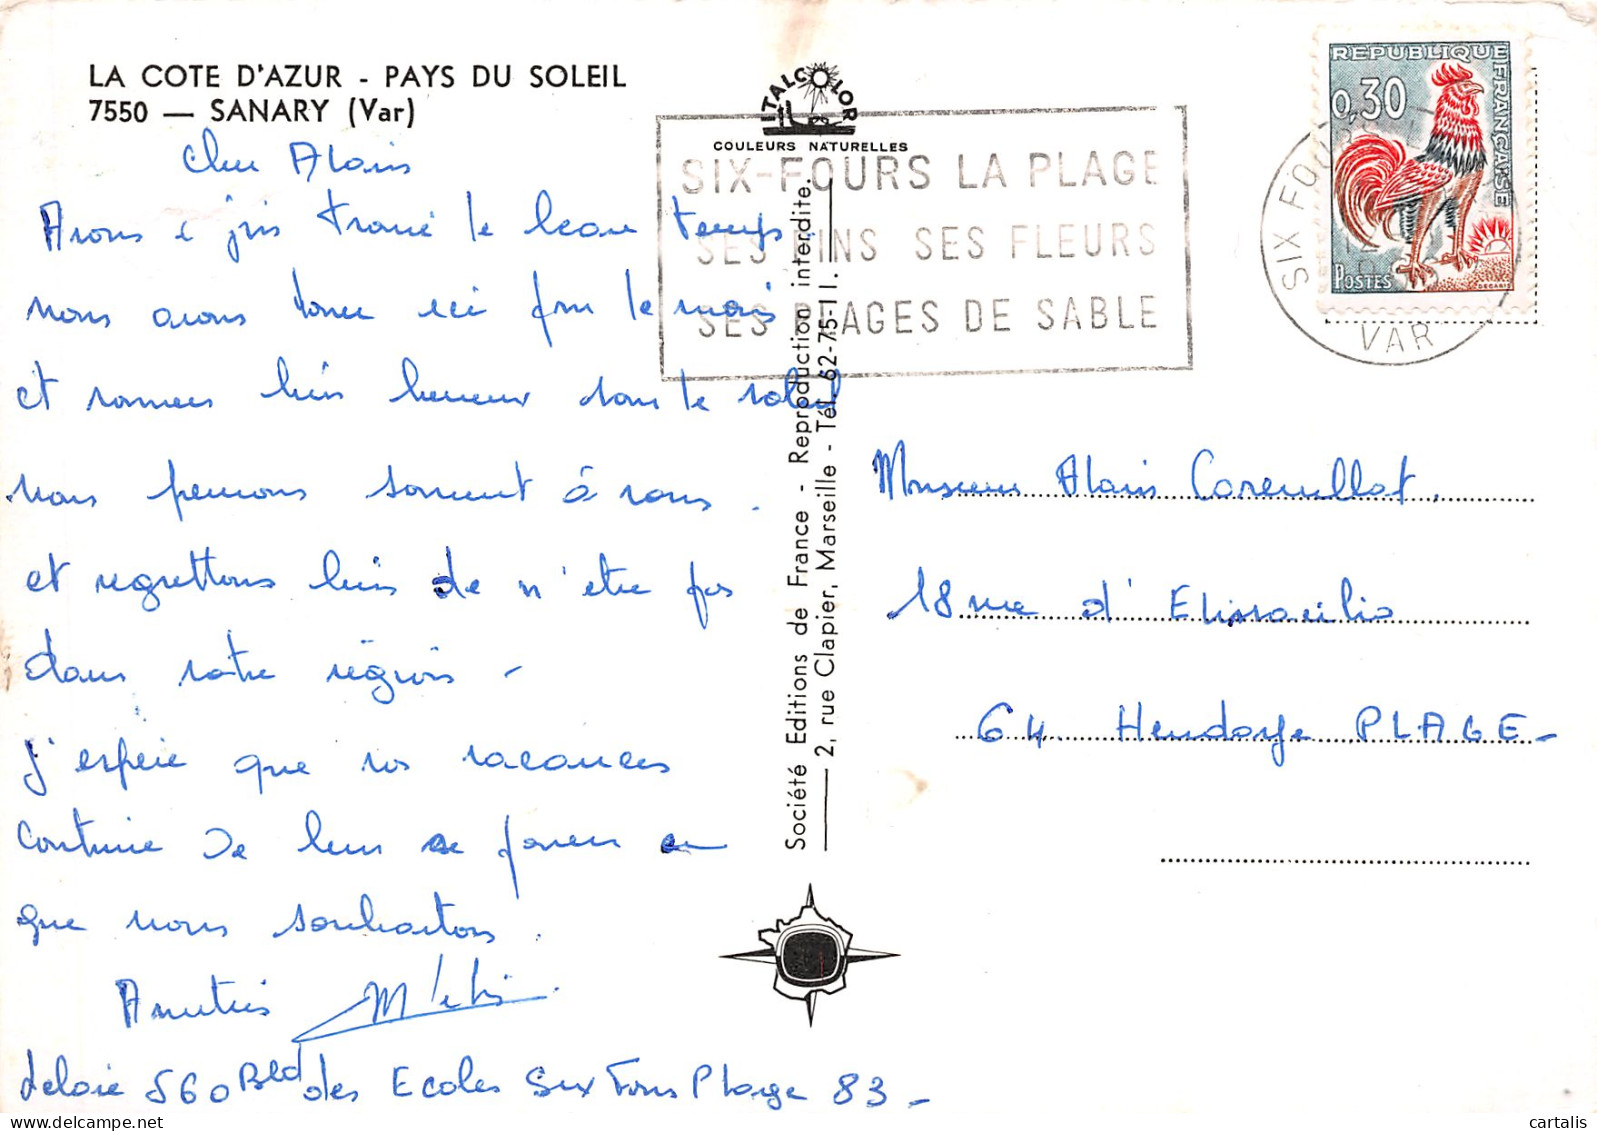 LA COTE D'AZUR - PAYS DU SOLEIL
7550 — SANARY (Var)
Cher Alain
Avons e fin trouvé le beau temps.
nous avons louer ici pour le mois
et sommes bien heureux dans le soleil
nous pensons souvent à vous.
et regrettons bien de n'être pas
dans votre région -
J'espère que vos vacances
continue de leur en
que nous souhaitons.
Amitiés
560 Bld des Ecoles Six Fours Plage 83 -
ITALCOLOR
COULEURS NATURELLES
SIX-FOURS LA PLAGE
SES PINS SES FLEURS
SES PLAGES DE SABLE
Société Editions de France - Reproduction interdite.
2, rue Clapier, Marseille - Tél. 62-75-11.
REPUBLIQUE FRANÇAISE
0,30
POSTES
DECARIS
SIX FOURS
VAR
Monsieur Alain
18 rue d'
64. Hendaye PLAGE -
cartalis